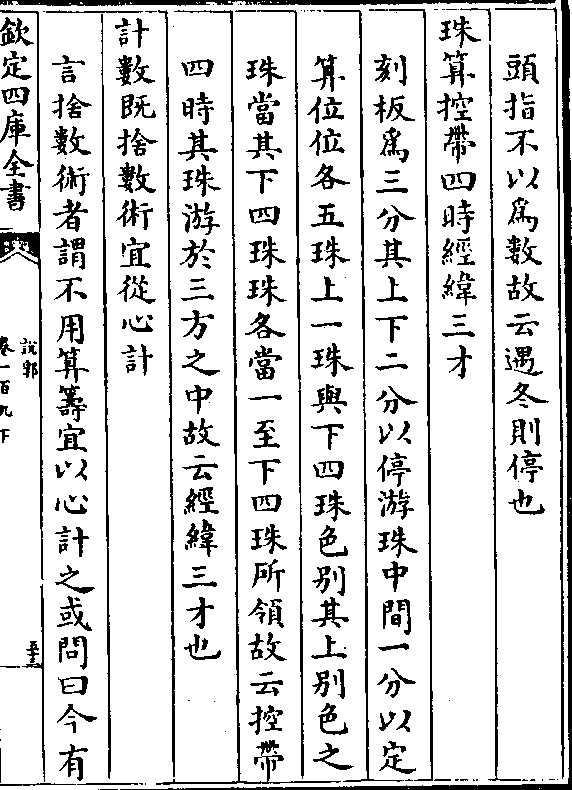 頭指不以爲數故云遇冬則停也
珠算控帶四時經緯三才
刻板爲三分其上下二分以停游珠中間一分以定
算位位各五珠上一珠與下四珠色別其上別色之
珠當其下四珠珠各當一至下四珠所領故云控帶
四時其珠游於三方之中故云經緯三才也
計數既捨數術宜從心計
言捨數術者謂不用算籌宜以心計之或問曰今有
欽定四庫全書
說郛
卷一百九下